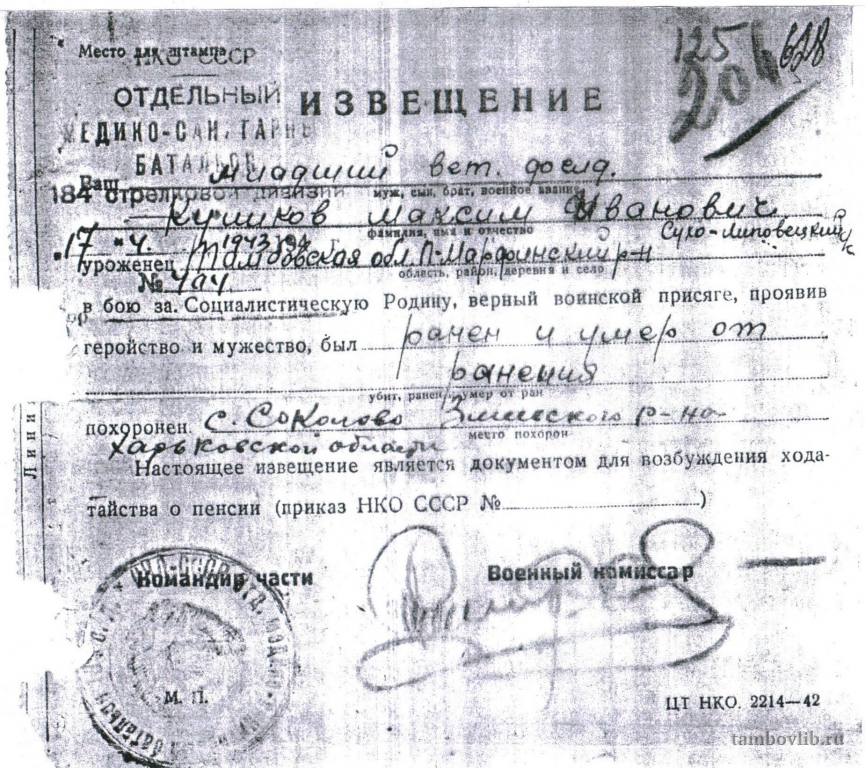 Место для штампа
НКО СССР
125
204
628
ОТДЕЛЬНЫЙ
ИЗВЕЩЕНИЕ
МЕДИКО-САНИТАРНЫ
БАТАЛЬОН
Ваш младший вет. фельд.
184 стрелковой дивизии
муж, сын, брат, военное звание
Куликов Максим Иванович
фамилия, имя и отчество
"17" 4. 1943
Сухо-Липовецкий с/с
уроженец Тамбовская обл. П-Марфинский р-н
область, район, деревня и село
№ 494
в бою за Социалистическую Родину, верный воинской присяге, проявив
геройство и мужество, был ранен и умер от
ранения
убит, ранен, умер от ран
похоронен с. Соколово Змиевского р-на
место похорон
Харьковской области
Настоящее извещение является документом для возбуждения хода-
тайства о пенсии (приказ НКО СССР № )
Командир части
Военный комиссар
М. П.
ЦТ НКО. 2214—42
Лини
tambovlib.ru